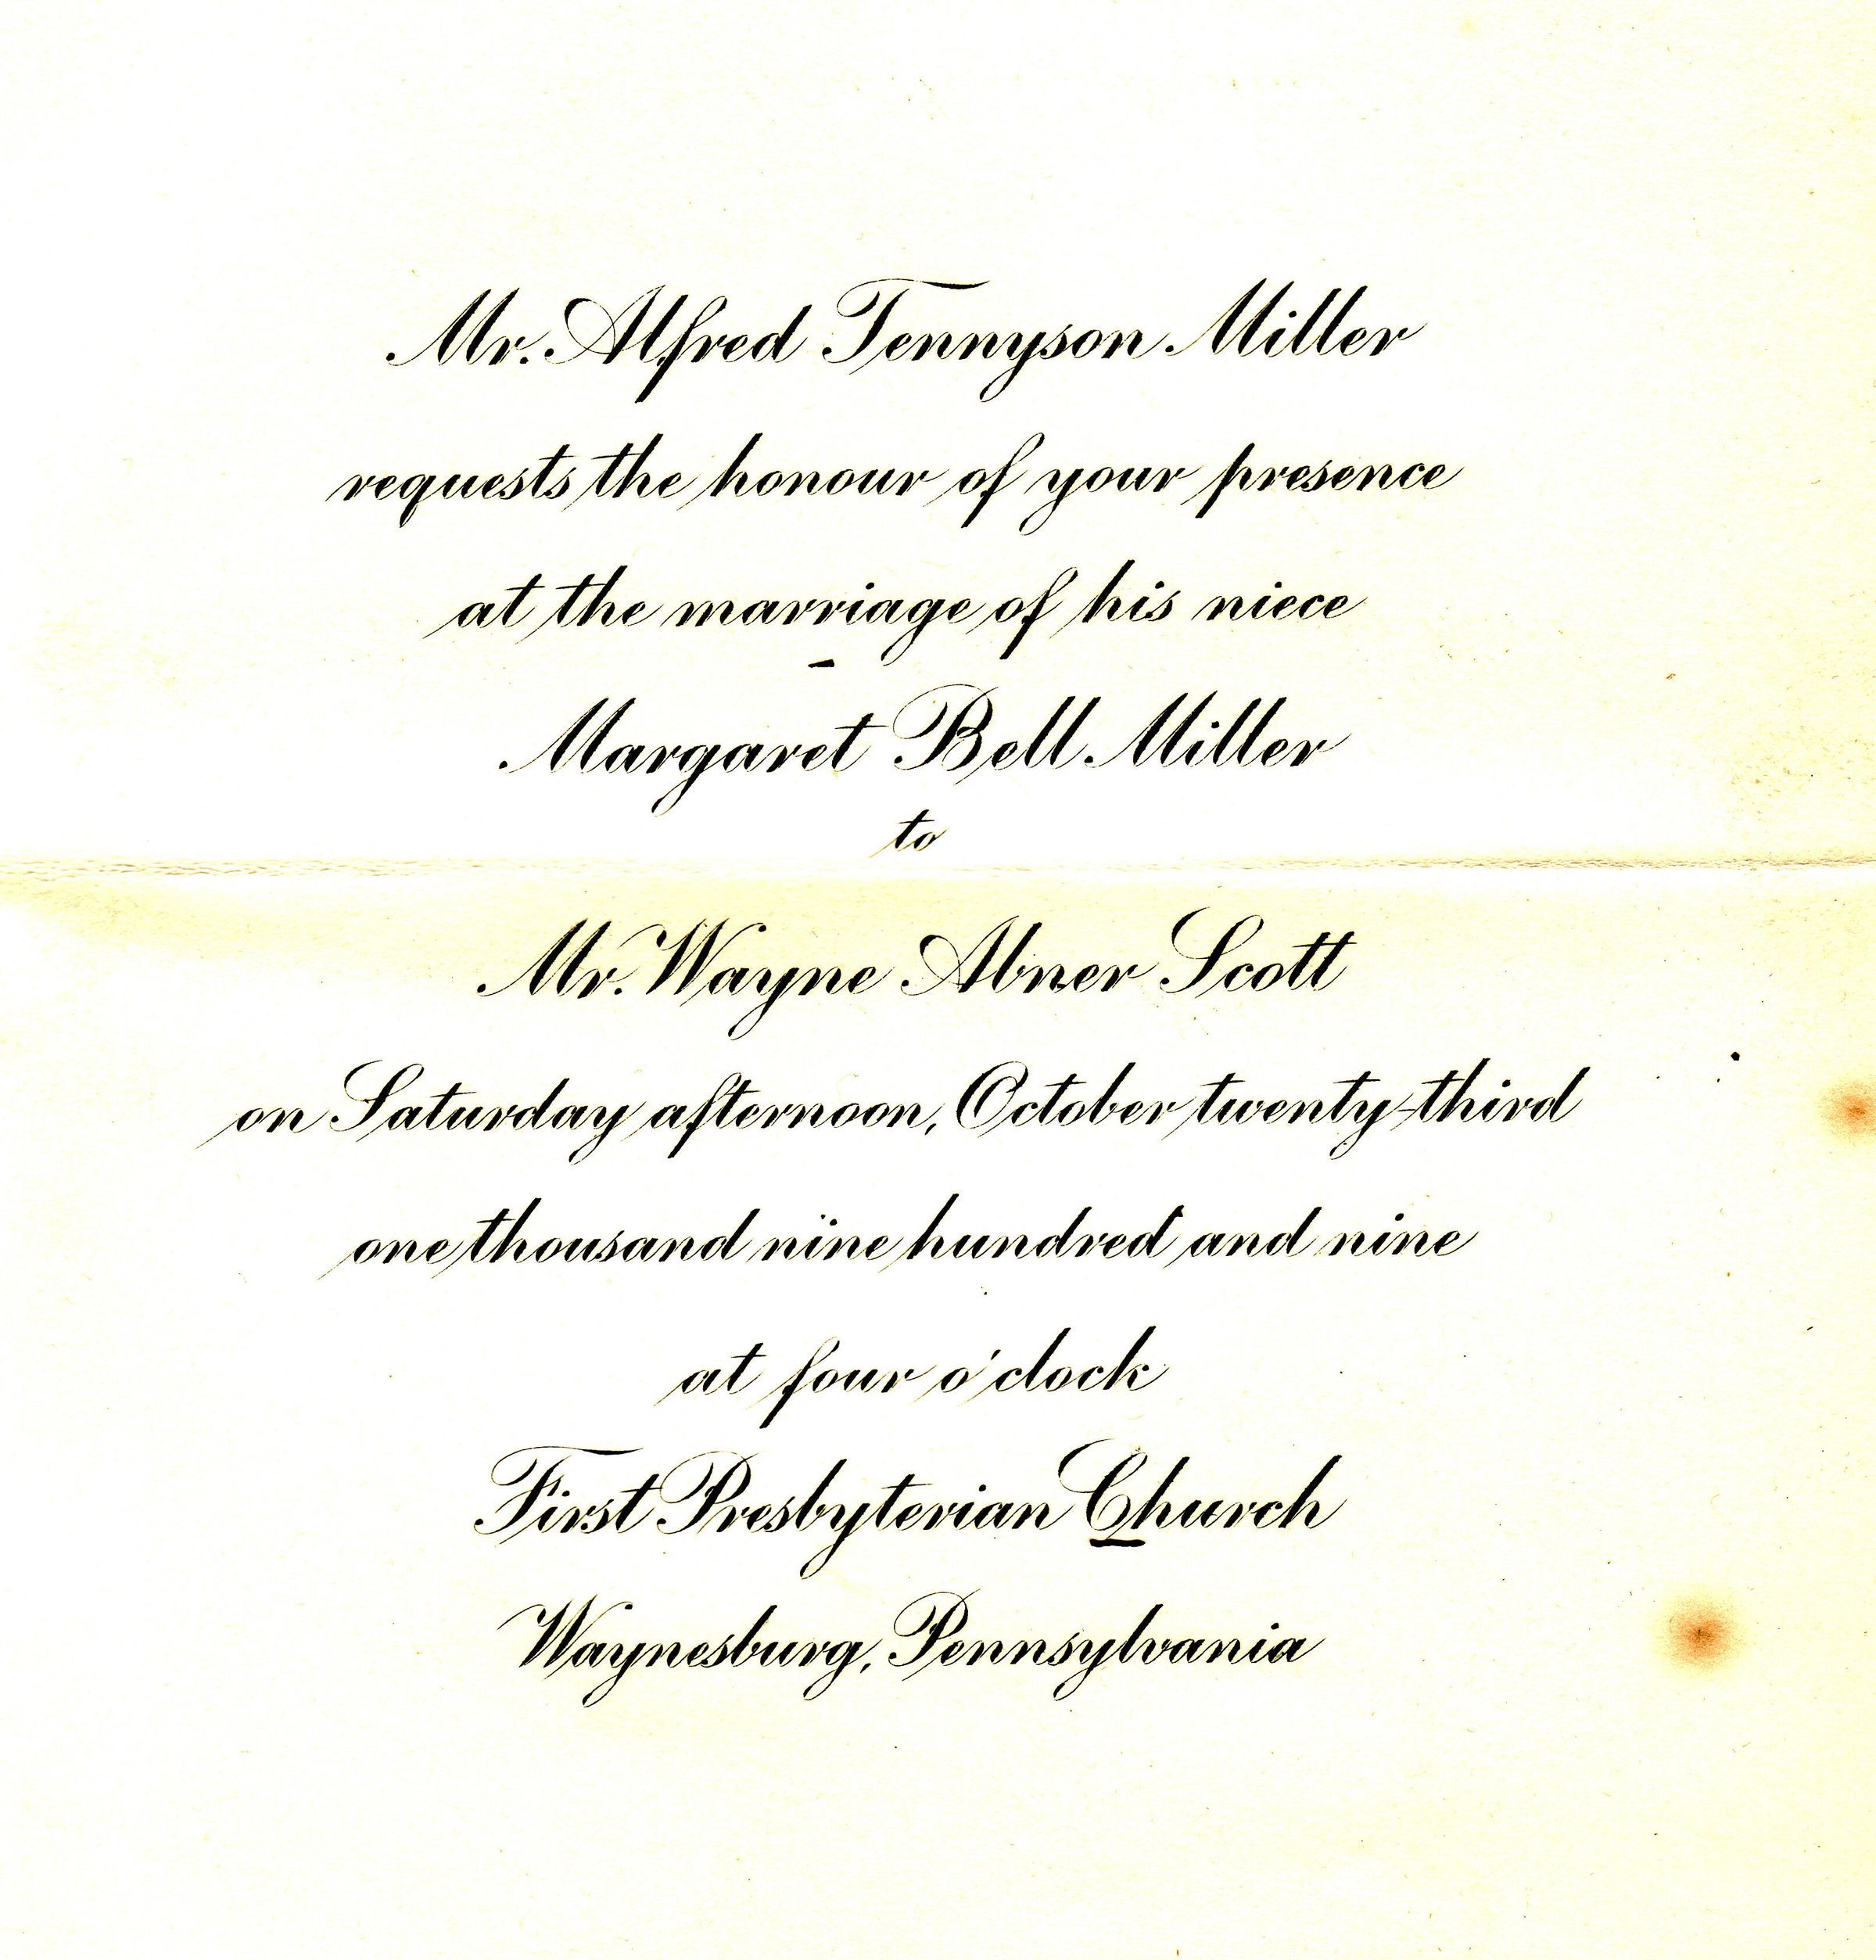 Mr. Alfred Tennyson Miller
requests the honour of your presence
at the marriage of his niece
Margaret Bell Miller
to
Mr. Wayne Abner Scott
on Saturday afternoon, October twenty-third
one thousand nine hundred and nine
at four o'clock
First Presbyterian Church
Waynesburg, Pennsylvania